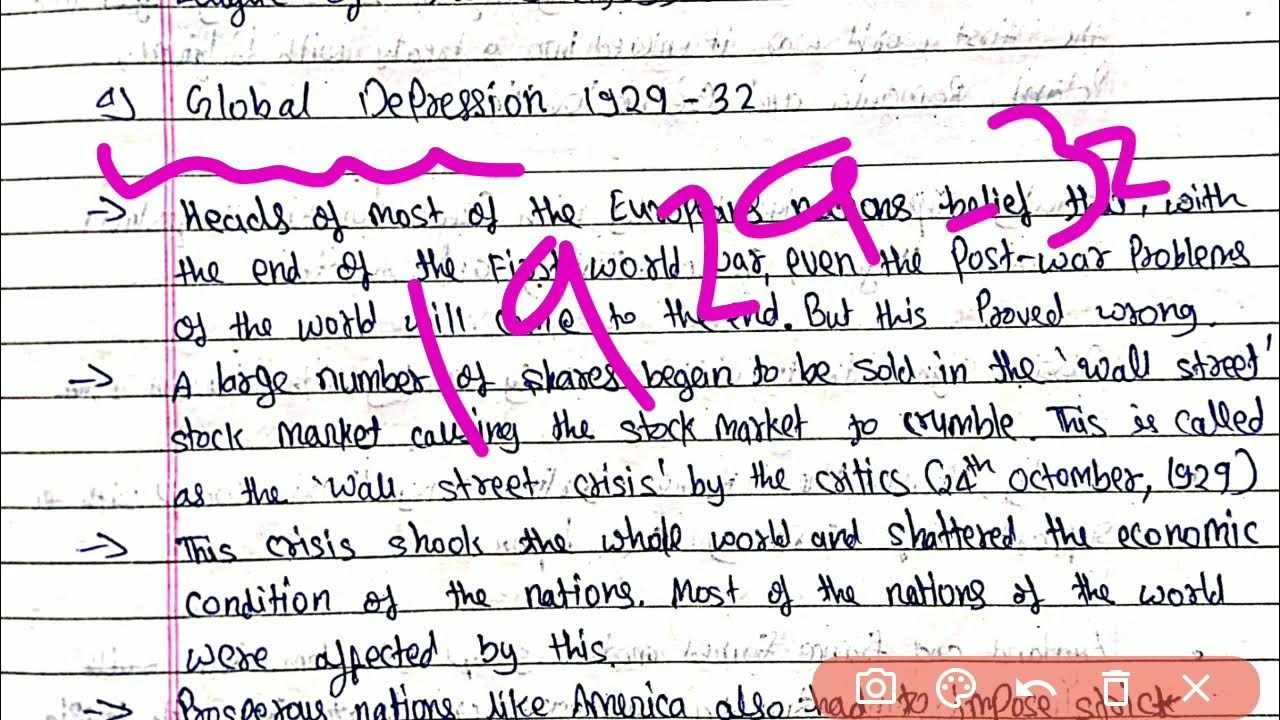 4) Global Depression 1929-32
1929-32
→ Heads of most of the European nations belief that, with
the end of the First world war, even the Post-war Problems
of the world will come to the end. But this Proved wrong.
→ A large number of shares began to be sold in the 'wall street'
stock market causing the stock market to crumble. This is called
as the 'wall street crisis' by the critics (24th octomber, 1929)
→ This crisis shook the whole world and shattered the economic
condition of the nations. Most of the nations of the world
were affected by this.
→ Prosperous nations like America also had to impose strict